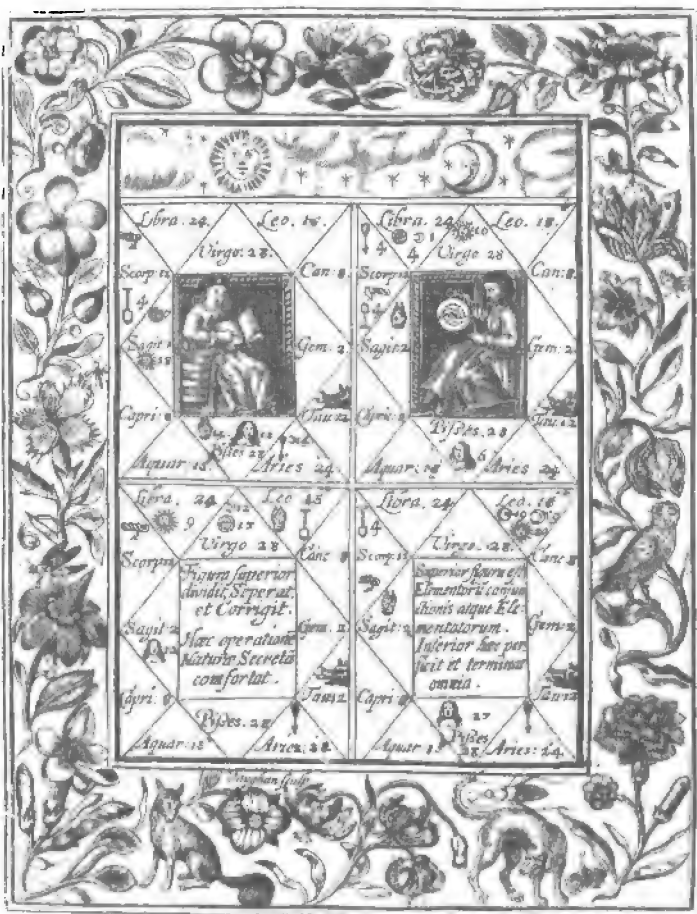 Libra. 24. Leo. 16.
Virgo. 28.
Scorp: 12 Can: 8.
4
Sagit: Gem: 2.
18
Capri: 8 Tau: 12
12
Pisces 28
Aquar: 18. Aries 24.
Libra. 24 Leo. 18.
4 1 10
4 Virgo 28
Scorp: Can: 8.
4
Sagit: 2 Gem: 2
Capric: Tau: 12
Pisces. 28
6
Aquar: 18 Aries 24
Libra. 24 Leo 18
9 12
15
Virgo 28
Scorp: Canc 8
Figura superior
dividit, Seperat,
et Corrigit.
Sagit: 2 Hæc operatione Gem: 2
12 Naturæ Secreta
comfortat.
Capri: 8 Tau 12
Pisces. 28
Aquar: 18 Aries. 28.
Libra. 24 Leo. 16
4
Virgo. 28.
Scorp: Canc 8
Superior figura est
Elementorū conjun
ctionis atque Ele-
Sagit: 2 mentatorum. Gem: 2
Inferior hæc per
ficit et terminat
omnia.
Capri: 8 Tau 12
27
Pisces
28
Aquar: Aries: 24.
Vaughan sculp